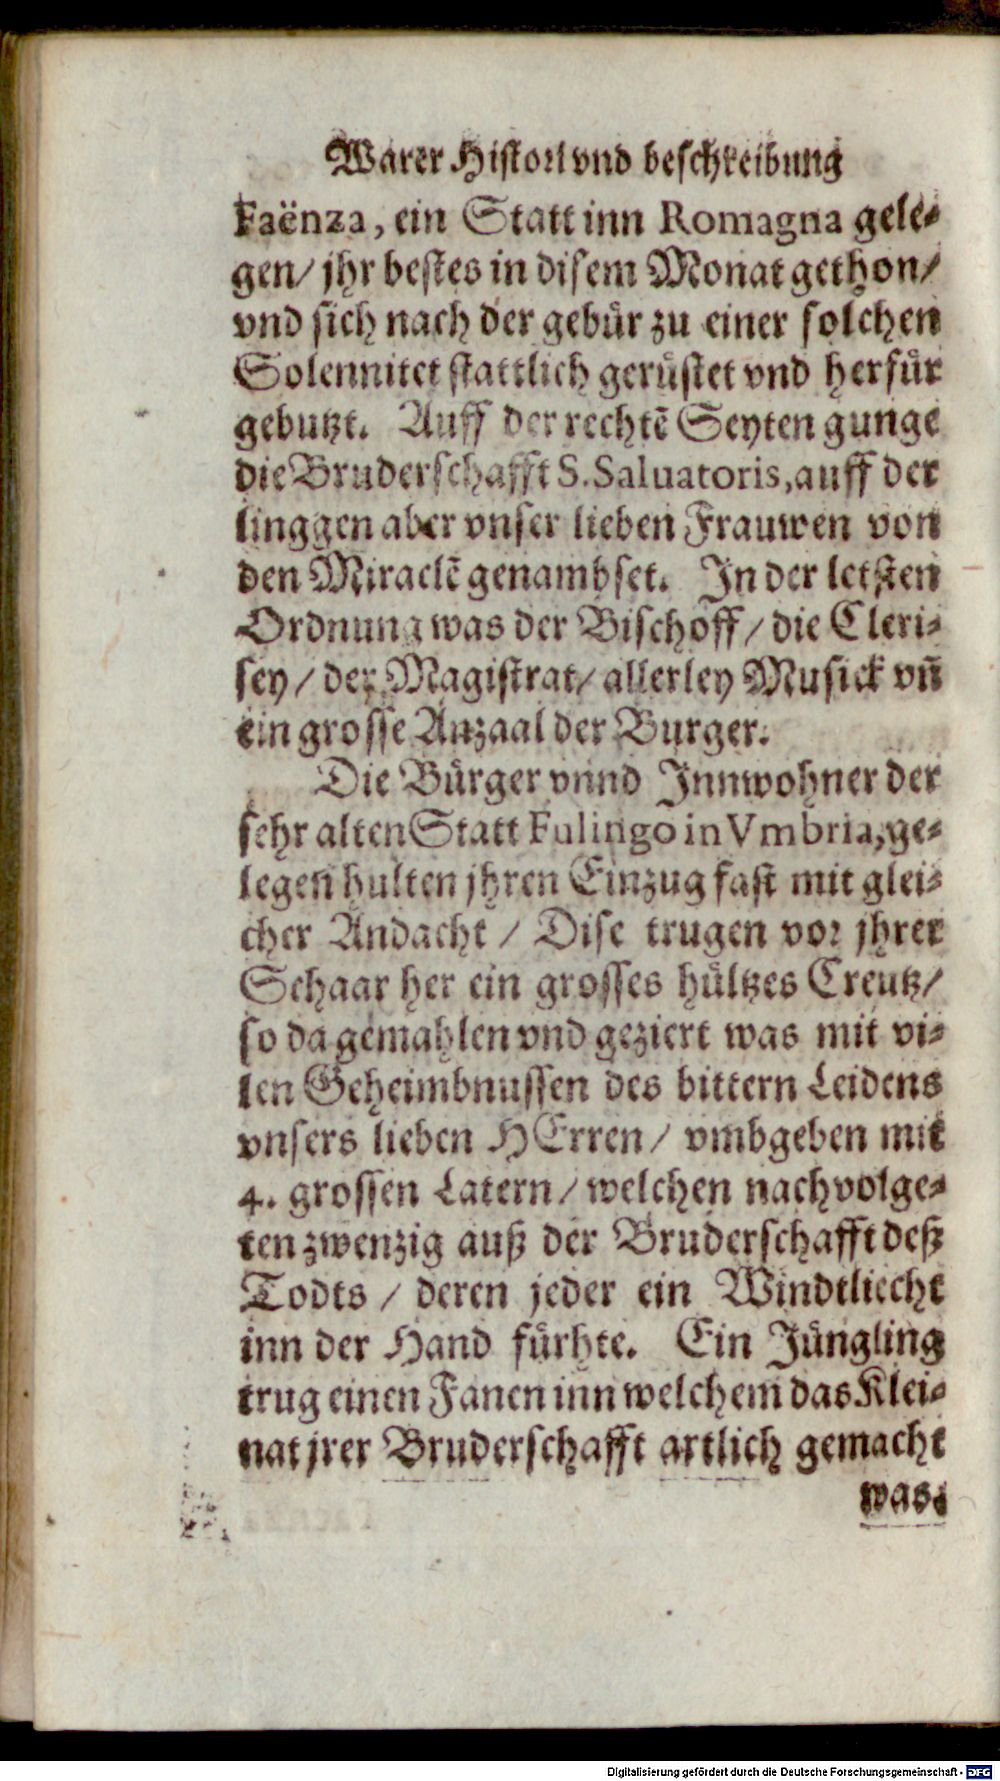 Warer Histori vnd beschreibung
Faënza, ein Statt inn Romagna gele-
gen/ jhr bestes in disem Monat gethon/
vnd sich nach der gebür zu einer solchen
Solennitet stattlich gerüstet vnd herfür
gebutzt. Auff der rechtẽ Seyten gunge
die Bruderschafft S. Saluatoris, auff der
linggen aber vnser lieben Frauwen von
den Miraclẽ genambset. In der letsten
Ordnung was der Bischoff / die Cleri-
sey / der Magistrat/ allerley Musick vñ
ein grosse Anzaal der Burger.
Die Bürger vnnd Innwohner der
sehr alten Statt Fulingo in Vmbria, ge-
legen hulten jhren Einzug fast mit glei-
cher Andacht / Dise trugen vor jhrer
Schaar her ein grosses hültzes Creutz/
so da gemahlen vnd geziert was mit vi-
len Geheimbnussen des bittern Leidens
vnsers lieben HErren / vmbgeben mit
4. grossen Latern / welchen nachvolge-
ten zwenzig auß der Bruderschafft deß
Todts / deren jeder ein Windtliecht
inn der Hand fürhte. Ein Jüngling
trug einen Fanen inn welchem das Klei-
nat jrer Bruderschafft artlich gemacht
was.
Digitalisierung gefördert durch die Deutsche Forschungsgemeinschaft - DFG